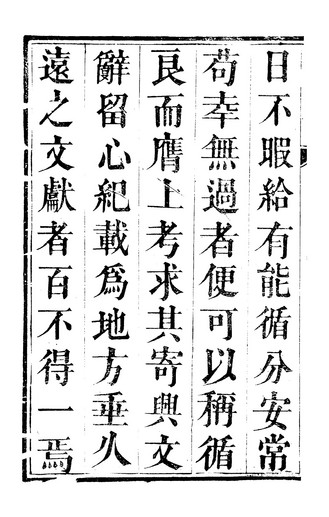 日不暇給有能循分安常
苟幸無過者便可以稱循
良而膺上考求其寄興文
辭留心紀載爲地方垂久
遠之文獻者百不得一焉